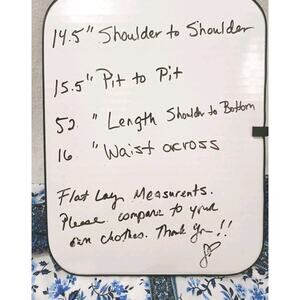 14.5" Shoulder to Shoulder
15.5" Pit to Pit
52 " Length Shoulder to Bottom
16 " Waist across
Flat Lay Measurents.
Please compare to your
own clothes. Thank You!!